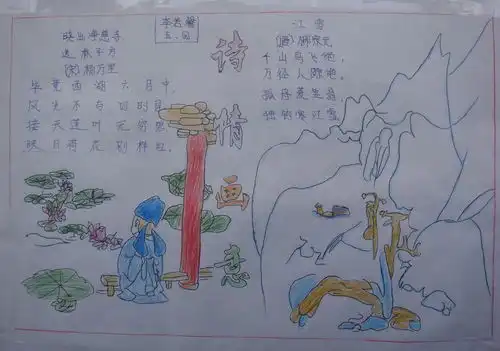 晓出净慈寺
送林子方
(宋)杨万里
毕竟西湖六月中,
风光不与四时同
接天莲叶无穷碧
映日荷花别样红.
诗情画意
江雪
(唐)柳宗元
千山鸟飞绝,
万径人踪灭.
孤舟蓑笠翁
独钓寒江雪.